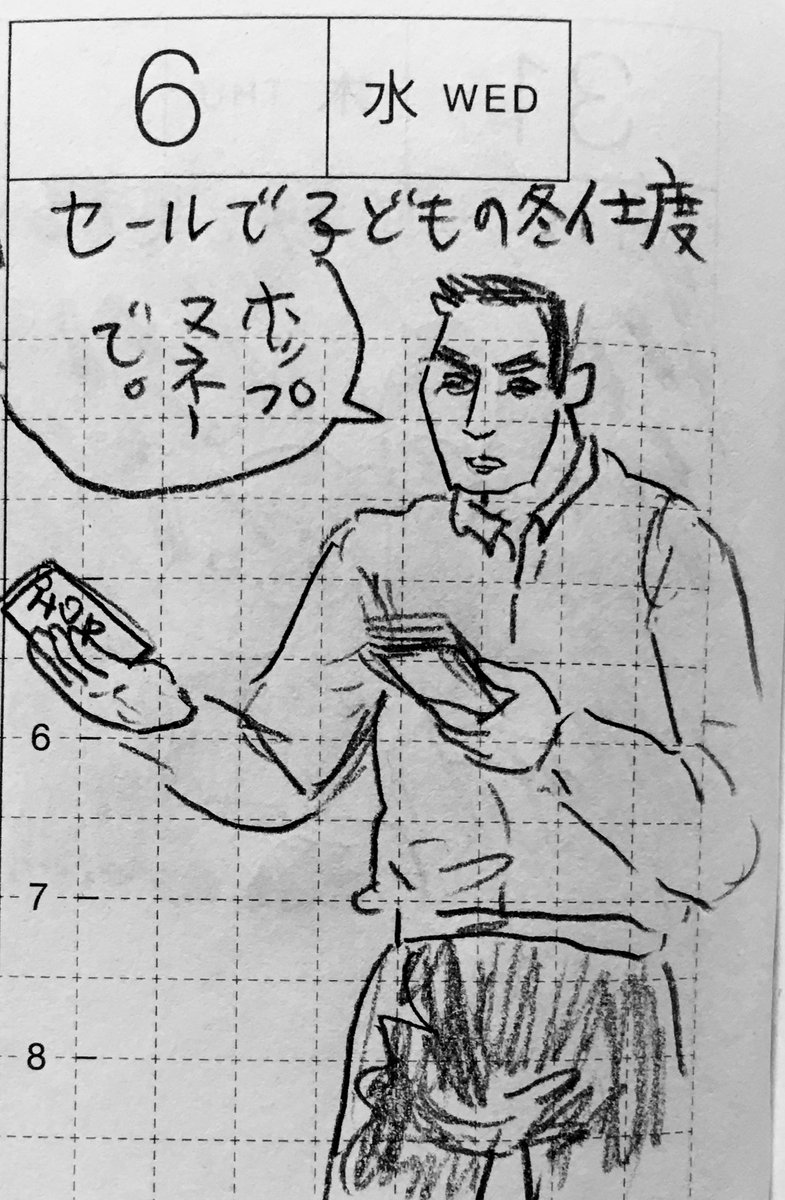 6
水 WED
セールで子どもの冬仕度
ホップ
マネー
で。
HOP
6
7
8